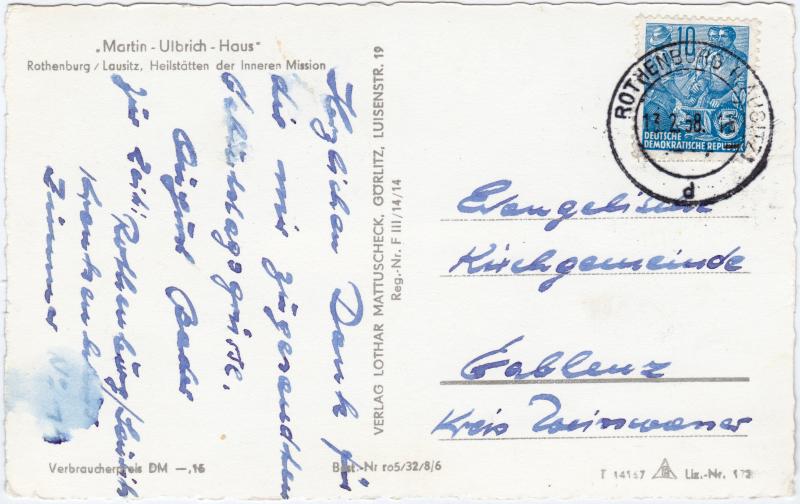 „Martin - Ulbrich - Haus"
Rothenburg / Lausitz, Heilstätten der Inneren Mission
Herzlichen Dank für
die mir zugesandten
Geburtstagsgrüsse.
August
zur Zeit: Rothenburg/Lausitz
Krankenhaus
Zimmer No:
Verbraucherpreis DM —,15
Best.-Nr ro5/32/8/6
VERLAG LOTHAR MATTUSCHECK, GÖRLITZ, LUISENSTR. 19
Reg.-Nr. F III/14/14
10
15
DEUTSCHE
DEMOKRATISCHE REPUBLIK
ROTHENBURG (LAUSITZ)
d
Evangelische
Kirchgemeinde
Gablenz
Kreis Weisswasser
T 14157
Liz.-Nr. 172